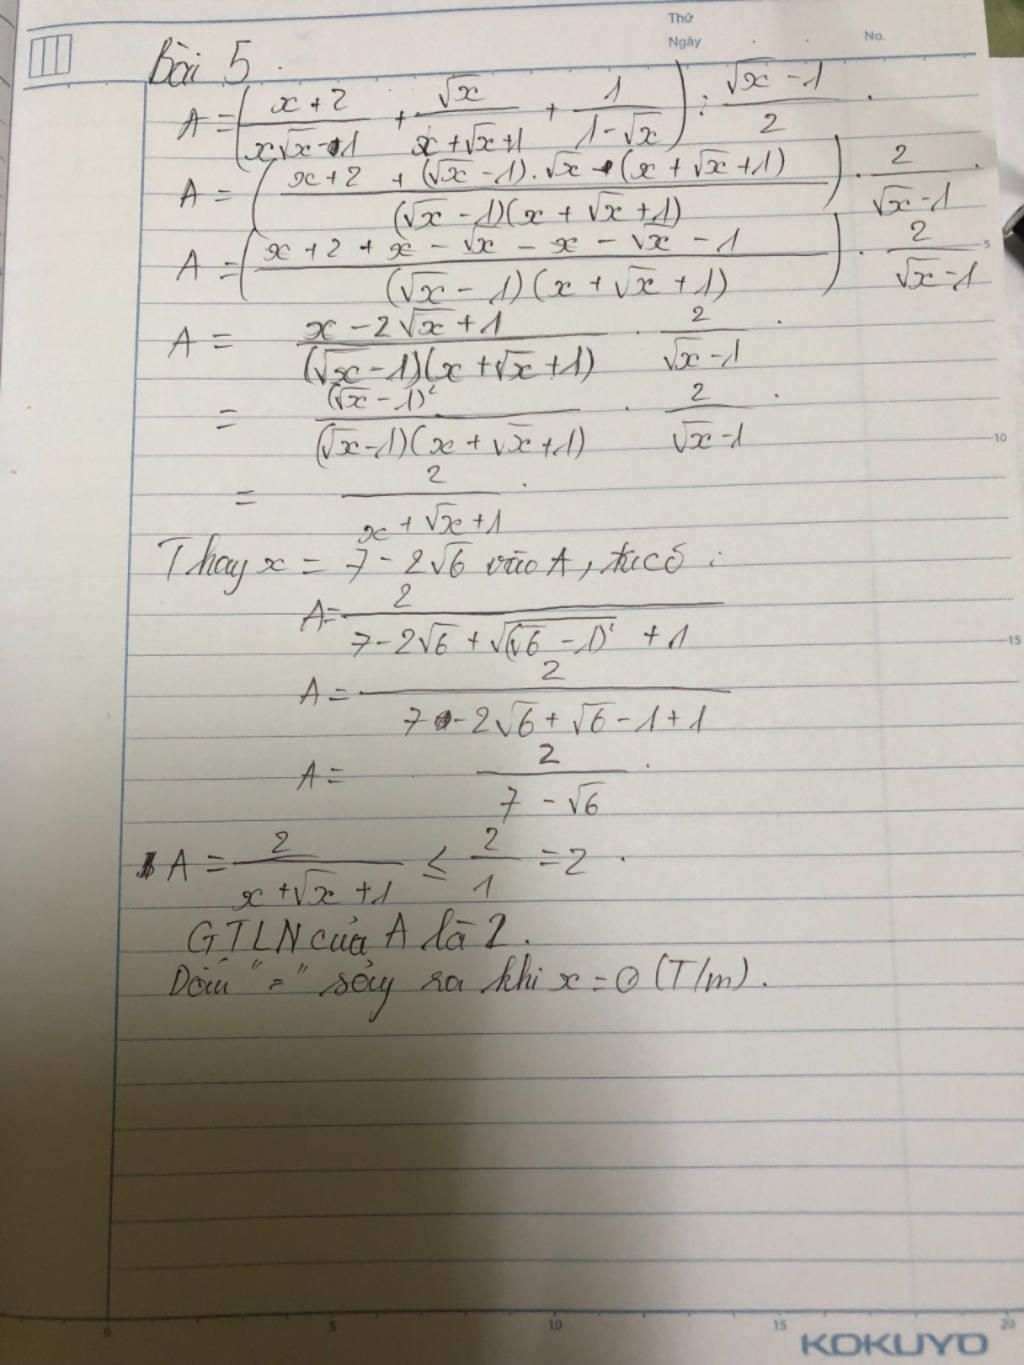 Thứ
Ngày . . No.
Bài 5.
A = ( (x+2)/(x√x-1) + √x/(x+√x+1) + 1/(1-√x) ) : (√x-1)/2 .
A = ( (x+2 + (√x-1).√x - (x+√x+1)) / ((√x-1)(x+√x+1)) ) . 2/(√x-1) .
A = ( (x+2+x-√x-x-√x-1) / ((√x-1)(x+√x+1)) ) . 2/(√x-1)
A = (x-2√x+1) / ((√x-1)(x+√x+1)) . 2/(√x-1) .
= (√x-1)² / ((√x-1)(x+√x+1)) . 2/(√x-1) .
= 2/(x+√x+1) .
Thay x = 7-2√6 vào A, ta có :
A = 2/(7-2√6+√((√6-1)²)+1)
A = 2/(7-2√6+√6-1+1)
A = 2/(7-√6) .
A = 2/(x+√x+1) ≤ 2/1 = 2 .
GTLN của A là 2.
Dấu "=" sảy ra khi x = 0 (T/m).
5
10
15
0 5 10 15 20
KOKUYO